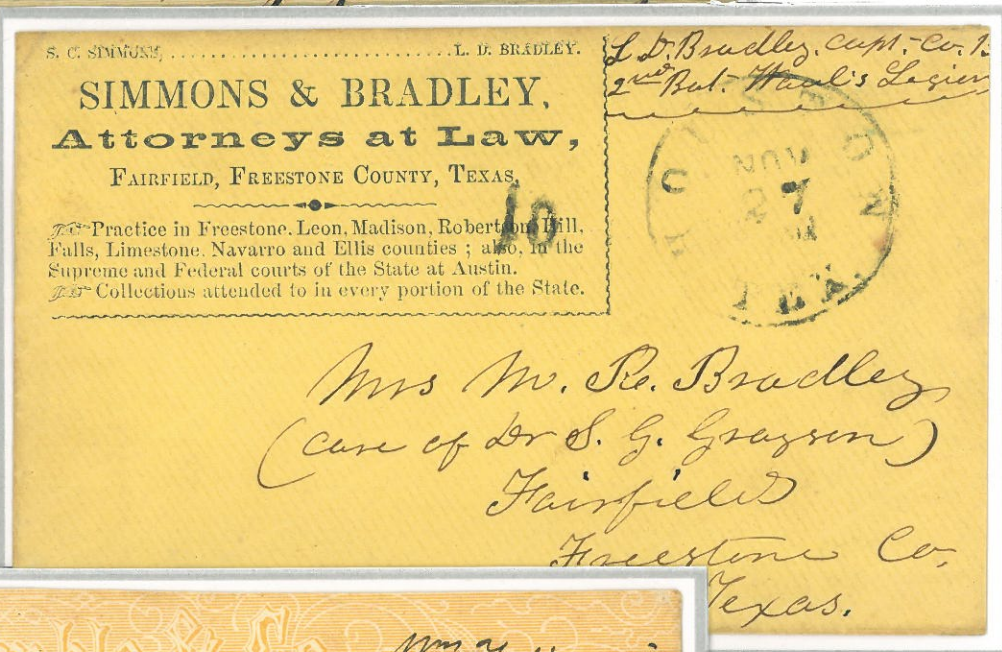 S. C. SIMMONS, ........................ L. D. BRADLEY.
SIMMONS & BRADLEY,
Attorneys at Law,
FAIRFIELD, FREESTONE COUNTY, TEXAS,
Practice in Freestone, Leon, Madison, Robertson, Hill,
Falls, Limestone, Navarro and Ellis counties ; also, in the
Supreme and Federal courts of the State at Austin.
Collections attended to in every portion of the State.
10
L. D. Bradley, Capt. Co.
2nd Bat. Waul's Legion
HOUSTON
NOV
27
TEX.
Mrs M. R. Bradley
(care of Dr S. G. Grayson)
Fairfield
Freestone Co.
Texas.